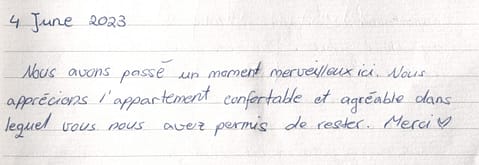 4 June 2023
Nous avons passé un moment merveilleux ici. Nous
apprécions l'appartement confortable et agréable dans
lequel vous nous avez permis de rester. Merci ♡